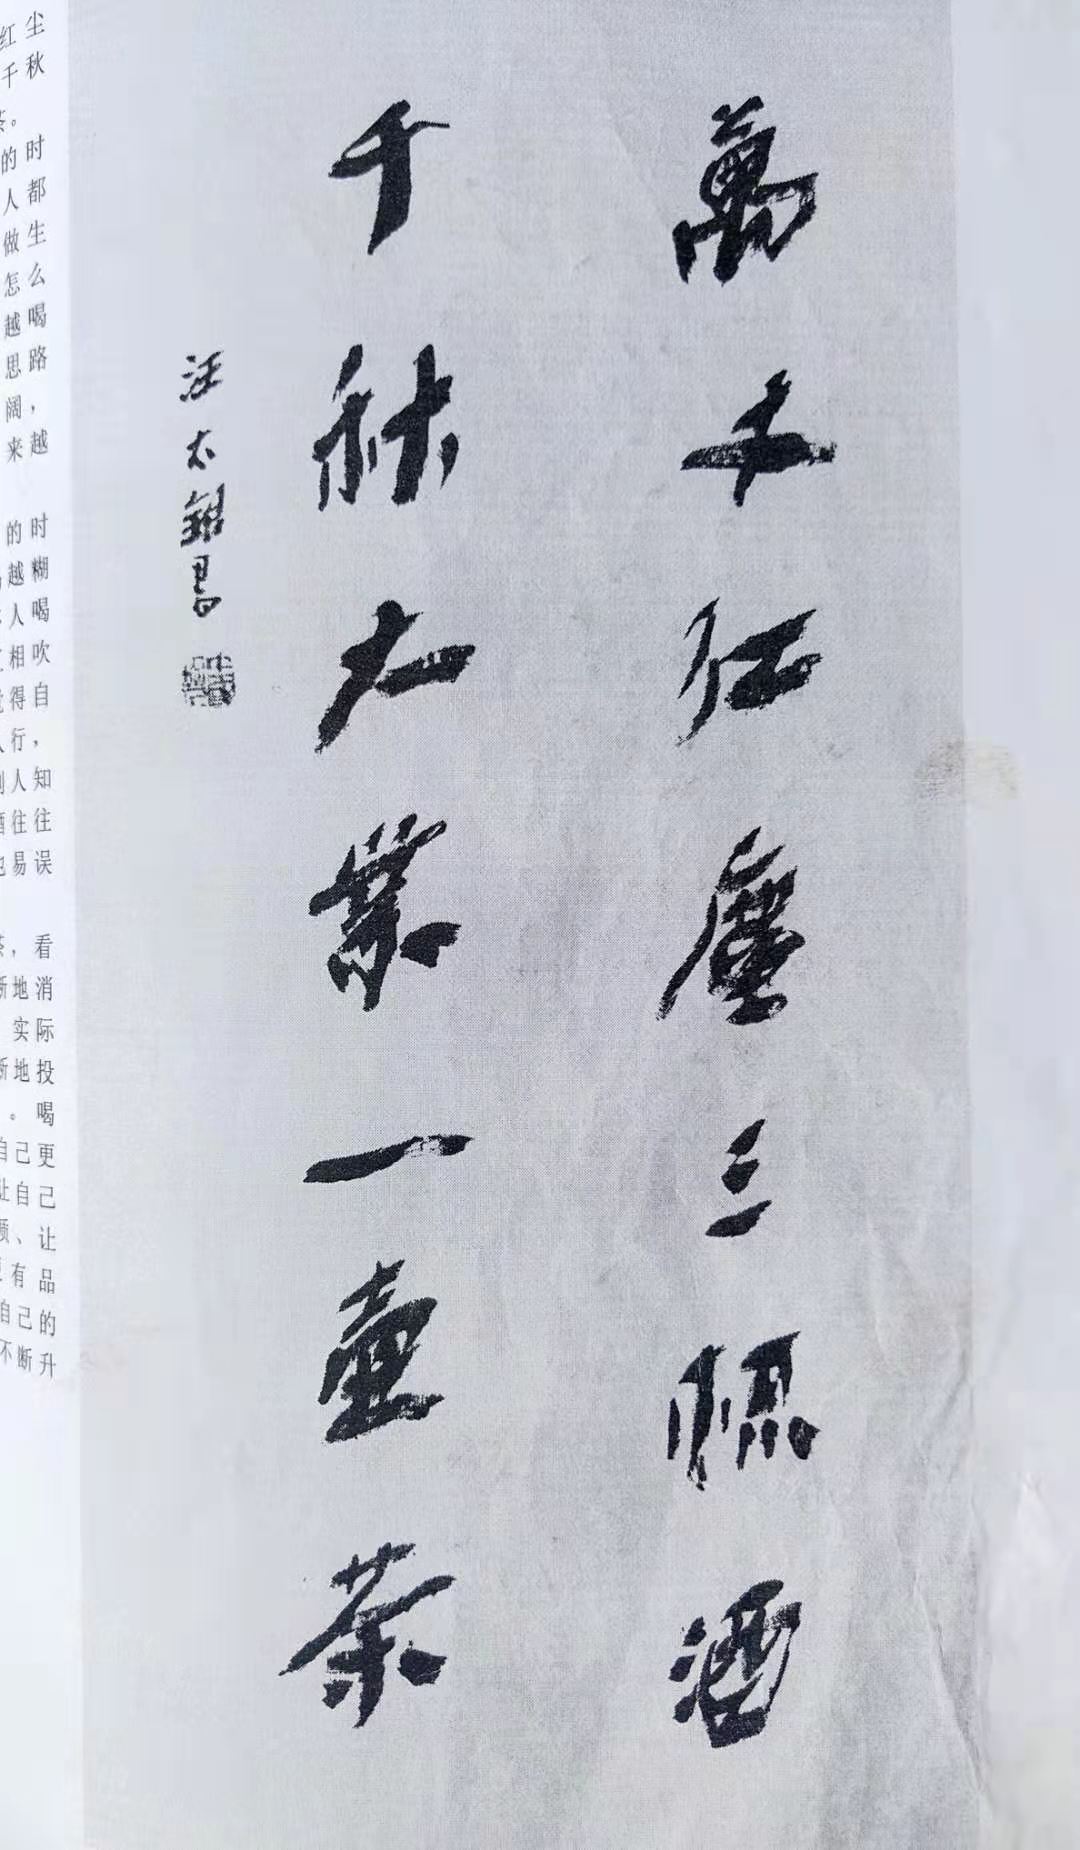 红尘
千秋
茶。
的时
人都
做生
怎么
越喝
思路
阔，
来越
的时
越糊
人喝
相吹
得自
行，
别人知
酒往往
也易误
茶，看
断地消
实际
断地投
。喝
自己更
让自己
、让
有品
自己的
不断升
萬丈紅塵三杯酒
千秋大業一壺茶
汪太銀書